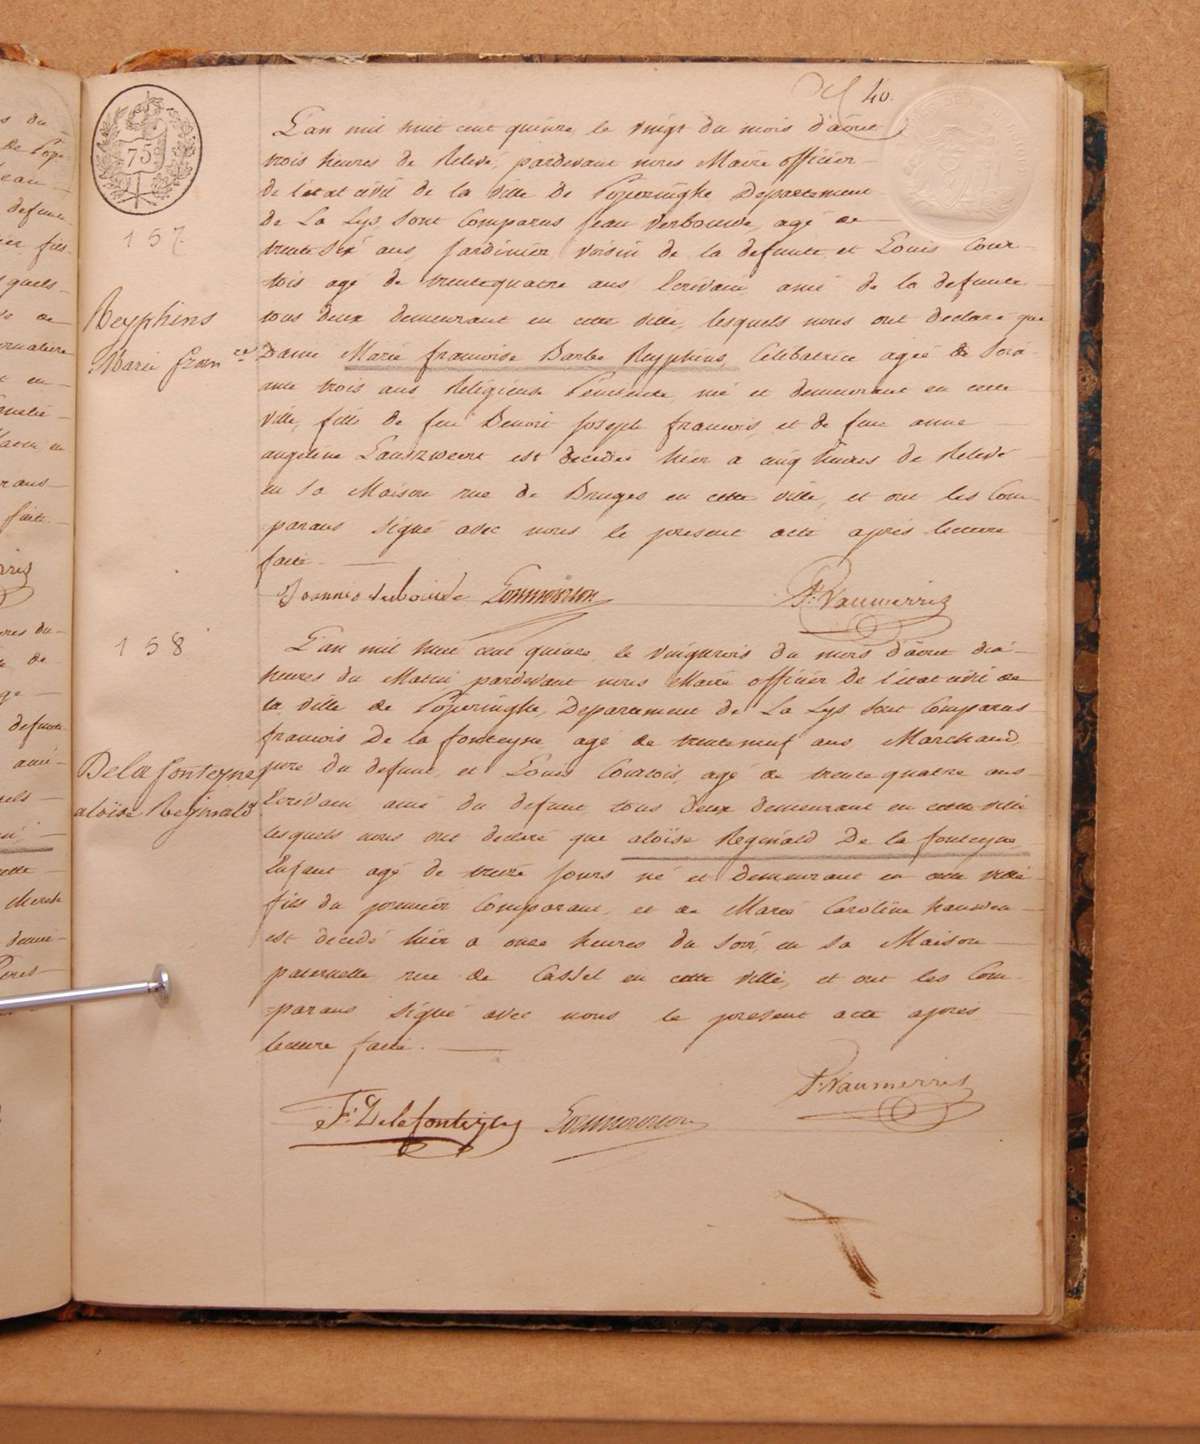 40.
75
157
Reyphins
Marie Fran.ce
L'an mil huit cent quinze le vingt du mois d'aout
trois heures de Relevé, pardevant nous Maire officier
de l'état civil de la ville de Poperinghe Departement
de La Lys, sont Comparus jean Verbouwe, agé de
trente six ans, Jardinier voisin de la defunte, et Louis Cour-
tois agé de trente quatre ans Ecrivain ami de la defunte
tous deux demeurant en cette ville, lesquels nous ont declaré que
Dame Marie francoise Barbe Reyphins, Celibatrice agée de Soix-
ante trois ans Religieuse Penitente, né et demeurant en cette
ville, fille de feu Benoit Joseph francois, et de feue anne
angeline Lanszweert est decedée hier a cinq heures de Relevé
en sa Maison rue de Bruges en cette ville, et ont les Com-
parans signé avec nous le present acte après lecture
faite.
Joannes Verbouwe P. Vanmerris
158
Dela fonteyne
aloïse Reginald
L'an mil huit cent quinze, le vingtrois du mois d'aout dix
heures du Matin pardevant nous Maire officier de l'état civil de
la ville de Poperinghe, Departement de La Lys sont Comparus
francois De la fonteyne agé de trenteneuf ans, Marchand,
pere du defunt, et Louis Courtois, agé de trente quatre ans
Ecrivain ami du defunt tous deux demeurant en cette ville
lesquels nous ont declaré que aloïse Reginald De la fonteyne
Enfant agé de treize jours né et demeurant en cette ville
fils du premier Comparant, et de Marie Caroline hauwen
est decedé hier a onze heures du soir, en sa Maison
paternelle rue de Cassel en cette ville, et ont les Com-
=parans signé avec nous le present acte après
lecture faite.
F. Delafonteyne P. Vanmerris